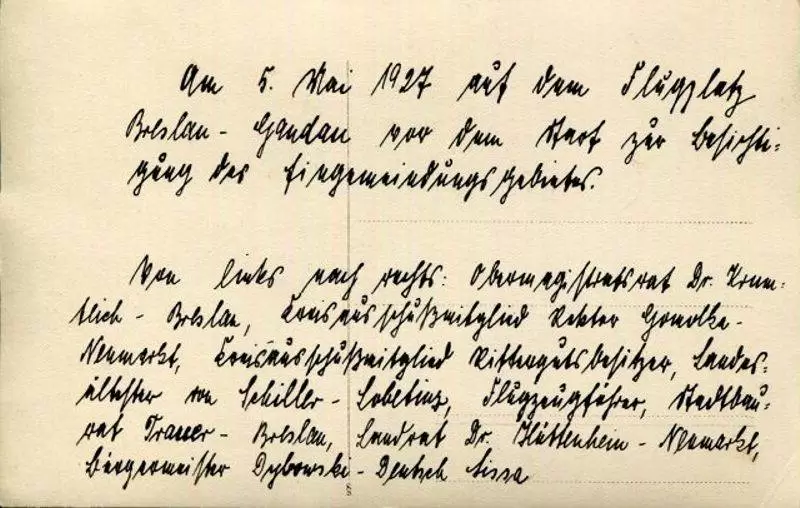 Am 5. Mai 1927 auf dem Flugplatz
Breslau - Gandau vor dem Start zur Besichti-
gung des Eingemeindungsgebietes.
Von links nach rechts: Obermagistratsrat Dr.
- Breslau, Kreisausschußmitglied Rektor Gomolke-
Neumarkt, Kreisausschußmitglied Rittergutsbesitzer, Landes-
ältester von Schiller - Lobetinz, Flugzeugführer, Stadtbau-
rat Trauer - Breslau, Landrat Dr. Hüttenhein - Neumarkt,
Bürgermeister Dybowski - Deutsch Lissa